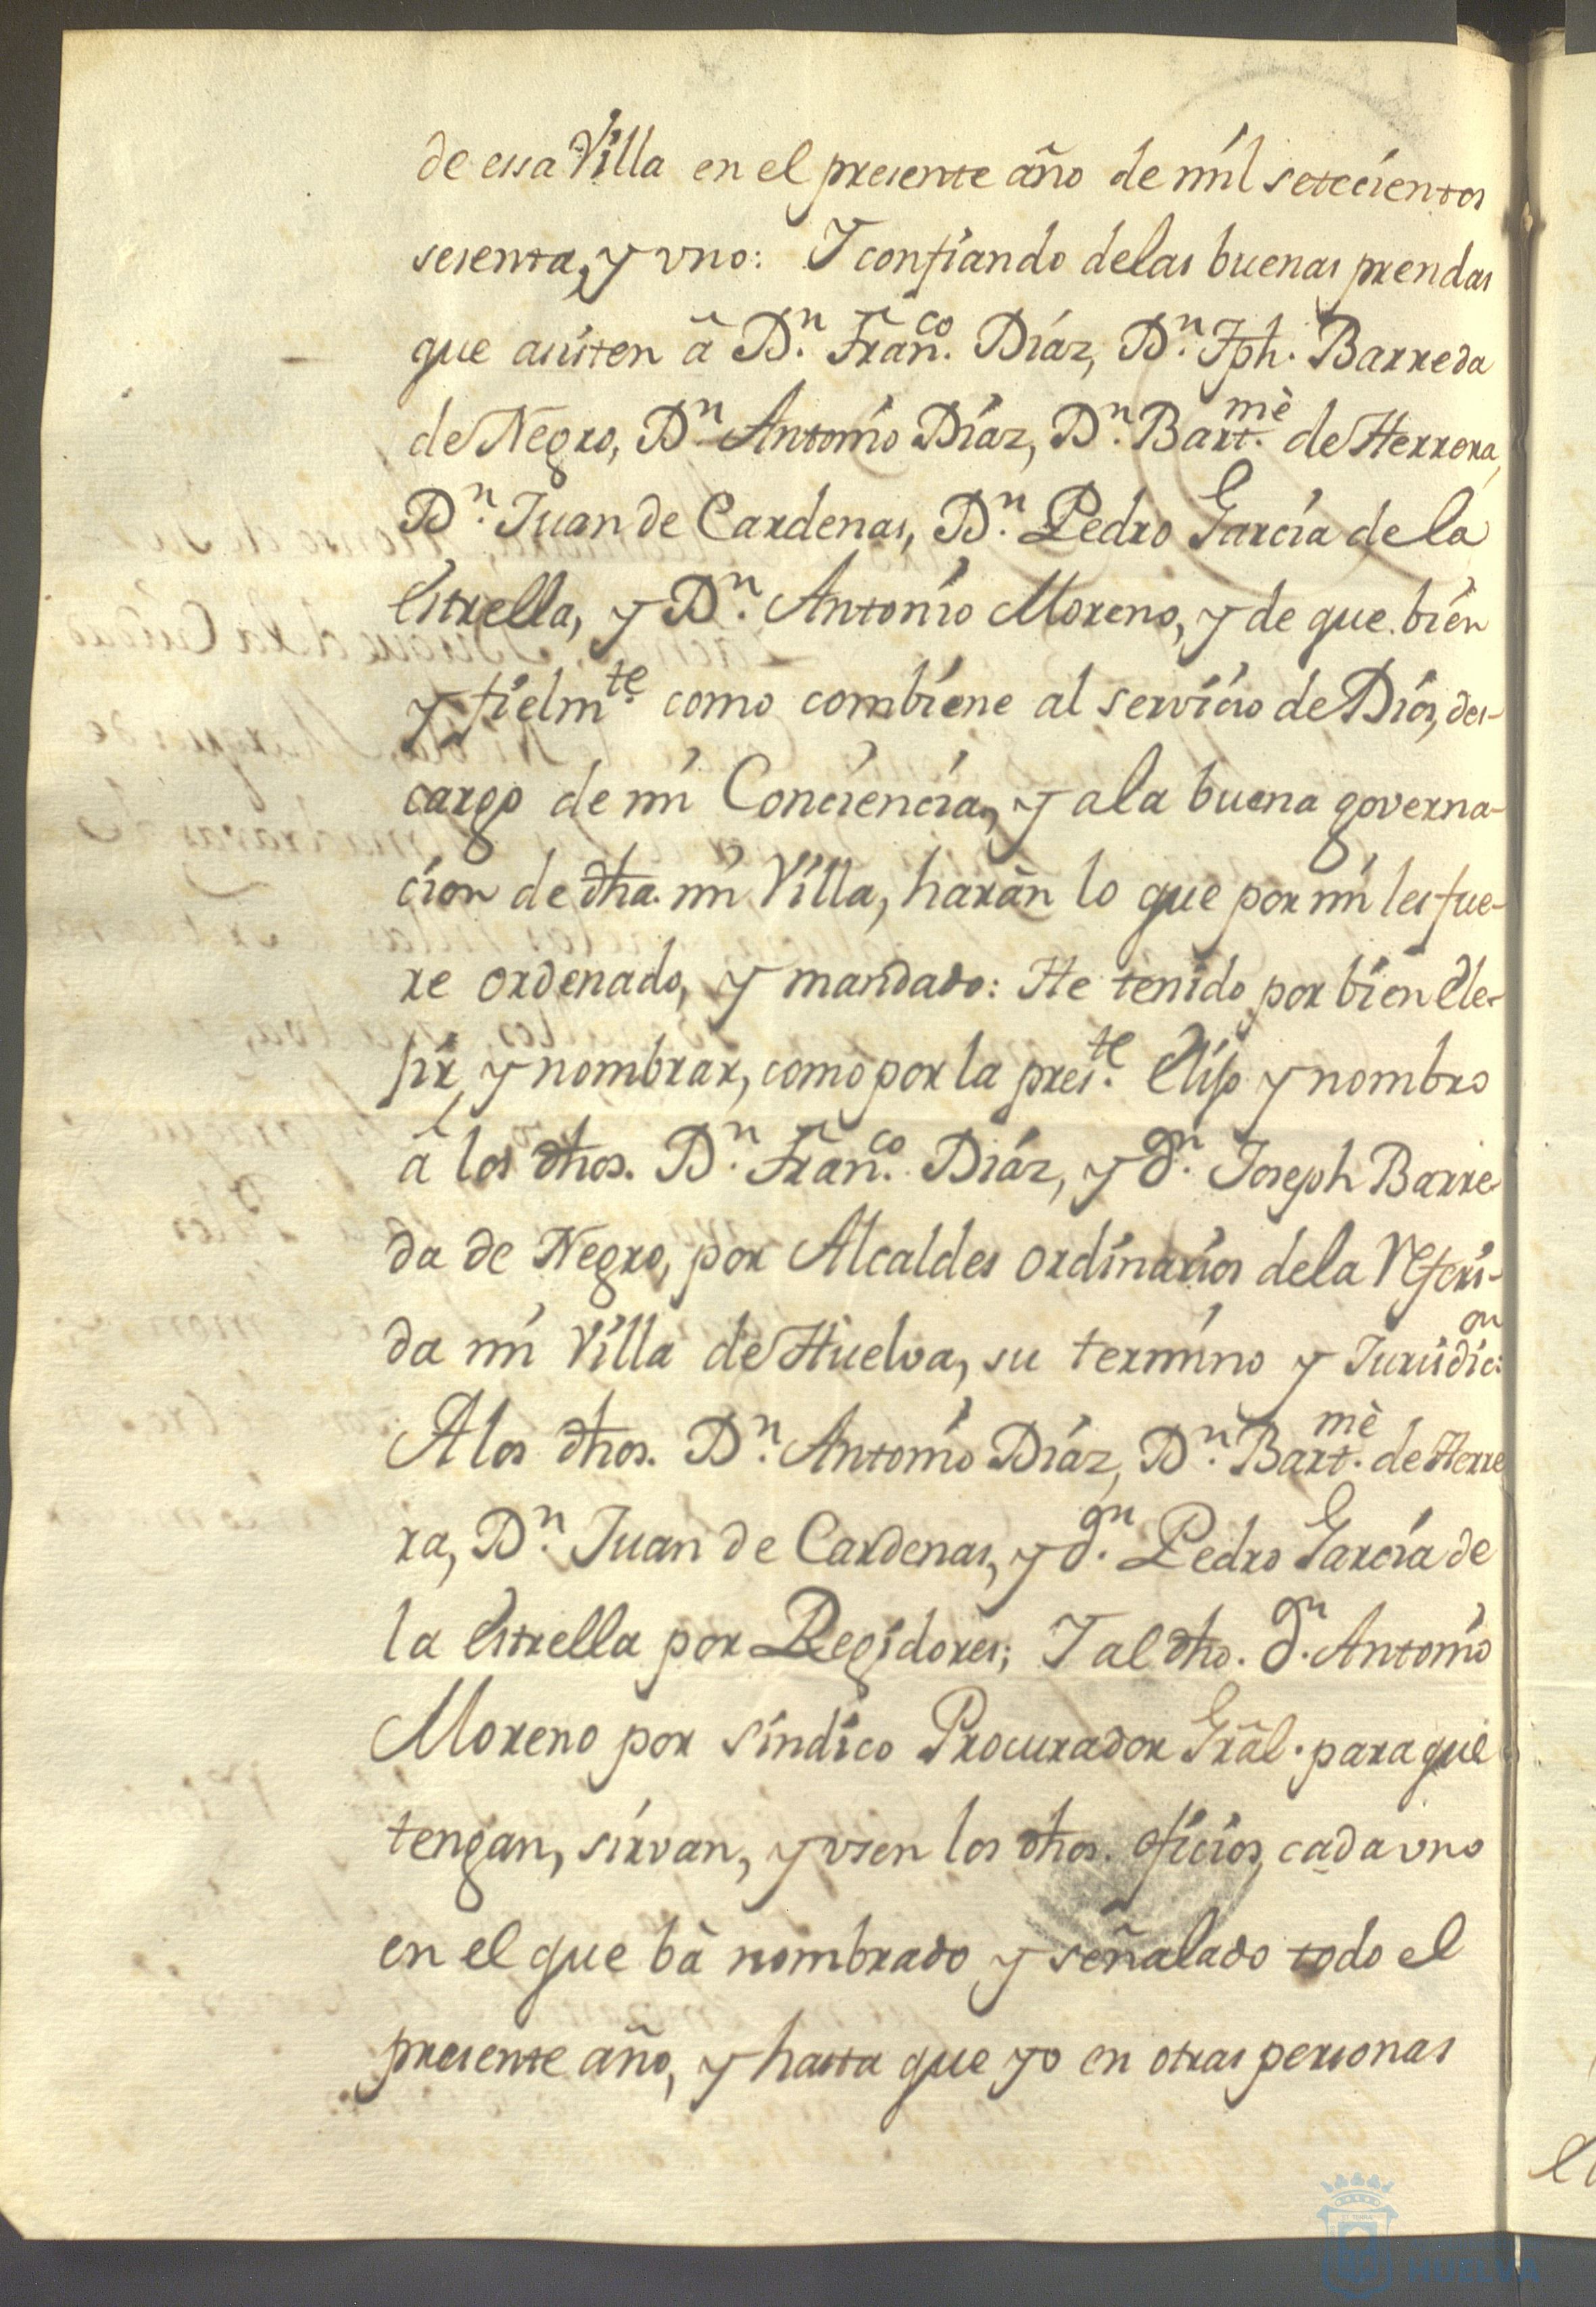 de essa Villa en el presente año de mil setecientos
sesenta, y vno: Y confiando delas buenas prendas
que asisten â Dn. Franco. Diaz, Dn. Jph. Barreda
de Negro, Dn. Antonio Diaz, Dn. Bartmè. de Herrera,
Dn. Juan de Cardenas, Dn. Pedro Garcia de la
Estrella, y Dn. Antonio Moreno, y de que bien
y fielmte. como combiene al servicio de Dios, des-
cargo de mi Conciencia, y ala buena governa-
cion de dha. mi Villa, haràn lo que por mi les fue-
re ordenado, y mandado: He tenido por bien Ele-
jir, y nombrar, como por la preste. Elijo y nombro
â los dhos. Dn. Franco. Diaz, y dn. Joseph Barre-
da de Negro, por Alcaldes ordinarios dela Referi-
da mi Villa de Huelva, su termino y Jurisdicon:
A los dhos. Dn. Antonio Diaz, Dn. Bartmè. de Herre
ra, Dn. Juan de Cardenas, y dn. Pedro Garcia de
la Estrella por Regidores; Y al dho. dn. Antonio
Moreno por sindico Procurador Grãl. para que
tengan, sirvan, y vsen los dhos. oficios, cada vno
en el que bà nombrado y señalado todo el
presente año, y hasta que yo en otras personas
HUELVA